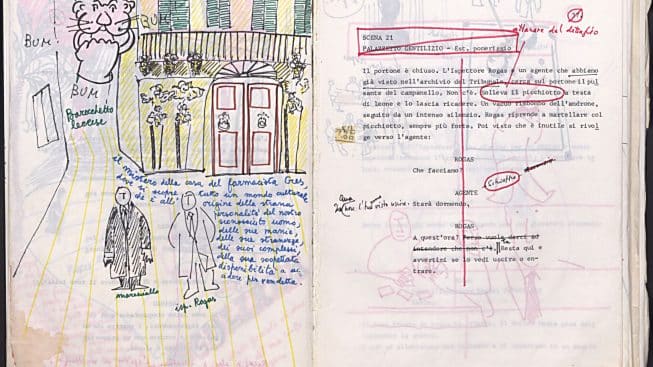 BUM
BUM
BUM
BUM
Barocchetto
leccese
il mistero della casa del farmacista Cres,
dove si scopre tutto un mondo culturale
che è all'origine della strana
personalità del nostro
sconosciuto uomo,
delle sue manie,
delle sue stranezze,
dei suoi complessi,
della sua
disponibilità a
per vendetta.
maresciallo
isp. Rogas
del
SCENA 21
PALAZZETTO GENTILIZIO - Est. pomeriggio
Il portone è chiuso. L'Ispettore Rogas e un agente che abbiamo
già visto nell'archivio del Tribunale, cerca sul portone il pul
sante del campanello, Non c'è. Solleva il picchiotto a testa
di leone e lo lascia ricadere. Un vasto rimbombo dell'androne,
seguito da un intenso silenzio. Rogas riprende a martellare col
picchiotto, sempre più forte. Poi visto che è inutile si rivol
ge verso l'agente:
ROGAS
Che facciamo?
AGENTE
Starà dormendo,
ROGAS
A quest'ora? Forse vuole darci ad
intendere che non c'è. Resta qui e
avvertini se lo vedi uscire o en-
trare.